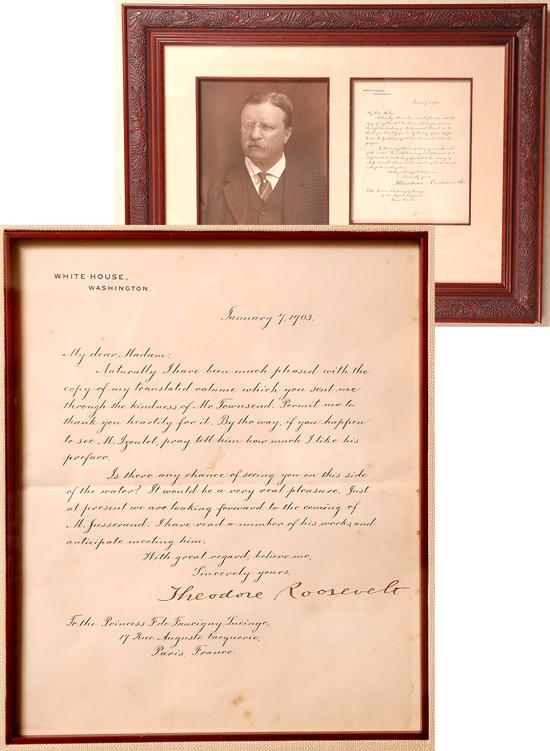 WHITE HOUSE,
WASHINGTON.
January 7, 1903.
My dear Madam:
Naturally I have been much pleased with the
copy of my translated volume which you sent me
through the kindness of Mr. Townsend. Permit me to
thank you heartily for it. By the way, if you happen
to see M. Izoulet, pray tell him how much I like his
preface.
Is there any chance of seeing you on this side
of the water? It would be a very real pleasure. Just
at present we are looking forward to the coming of
M. Jusserand. I have read a number of his works, and
anticipate meeting him.
With great regard, believe me,
Sincerely yours,
Theodore Roosevelt
To the Princess F. de Faucigny Lucinge,
17 Rue Auguste Vacquerie,
Paris, France.